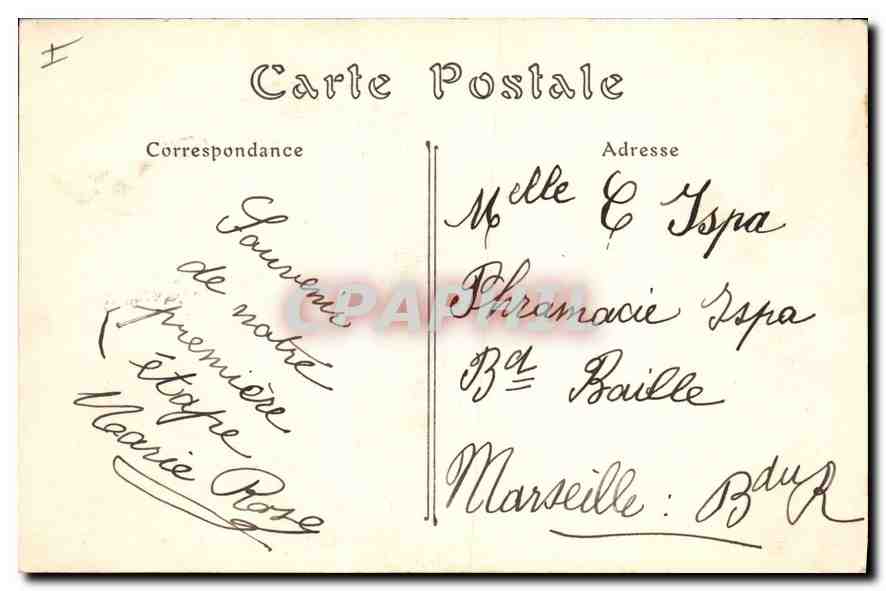 Carte Postale
Correspondance
Adresse
Souvenir
de notre
première
étape
Marie Rose
Melle C Ispa
Phramacie Ispa
Bd Baille
Marseille : B du R
CPAPHIL